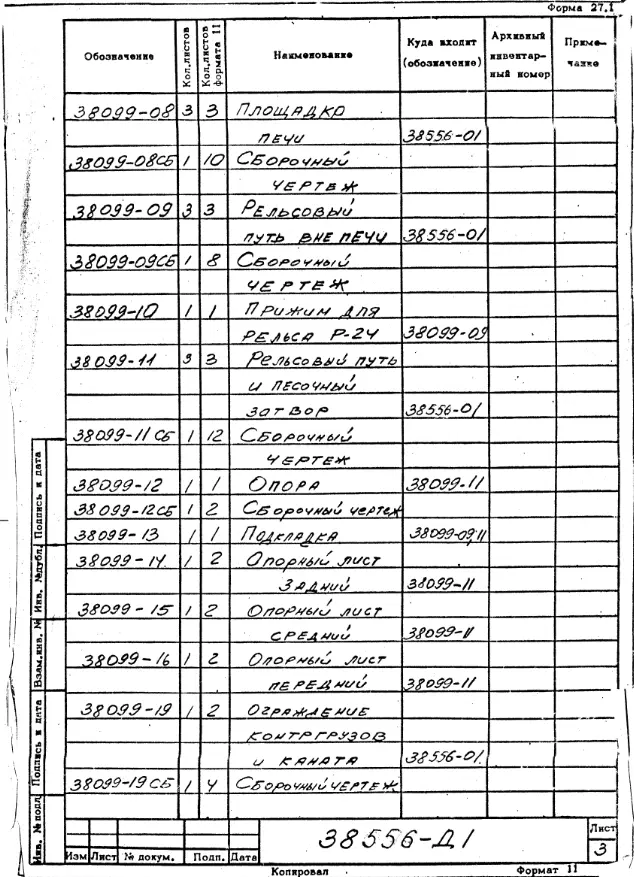 Форма 27.1
Обозначение Кол.листов Кол.листов формата 11 Наименование Куда входит (обозначение) Архивный инвентарный номер Примечание
38099-08 3 3 Площадка
печи 38556-01
38099-08СБ 1 10 Сборочный
чертеж
38099-09 3 3 Рельсовый
путь вне печи 38556-01
38099-09СБ 1 8 Сборочный
чертеж
38099-10 1 1 Прижим для
рельса Р-24 38099-09
38099-11 3 3 Рельсовый путь
и песочный
затвор 38556-01
38099-11СБ 1 12 Сборочный
чертеж
38099-12 1 1 Опора 38099-11
38099-12СБ 1 2 Сборочный чертеж
38099-13 1 1 Подкладка 38099-09,11
38099-14 1 2 Опорный лист
задний 38099-11
38099-15 1 2 Опорный лист
средний 38099-11
38099-16 1 2 Опорный лист
передний 38099-11
38099-19 1 2 Ограждение
контргрузов
и каната 38556-01
38099-19СБ 1 4 Сборочный чертеж
Подпись и дата
Инв. №дубл.
Взам.инв. №
Подпись и дата
Инв. №подл.
38556-Д1
Лист
3
Изм Лист № докум. Подп. Дата
Копировал Формат 11